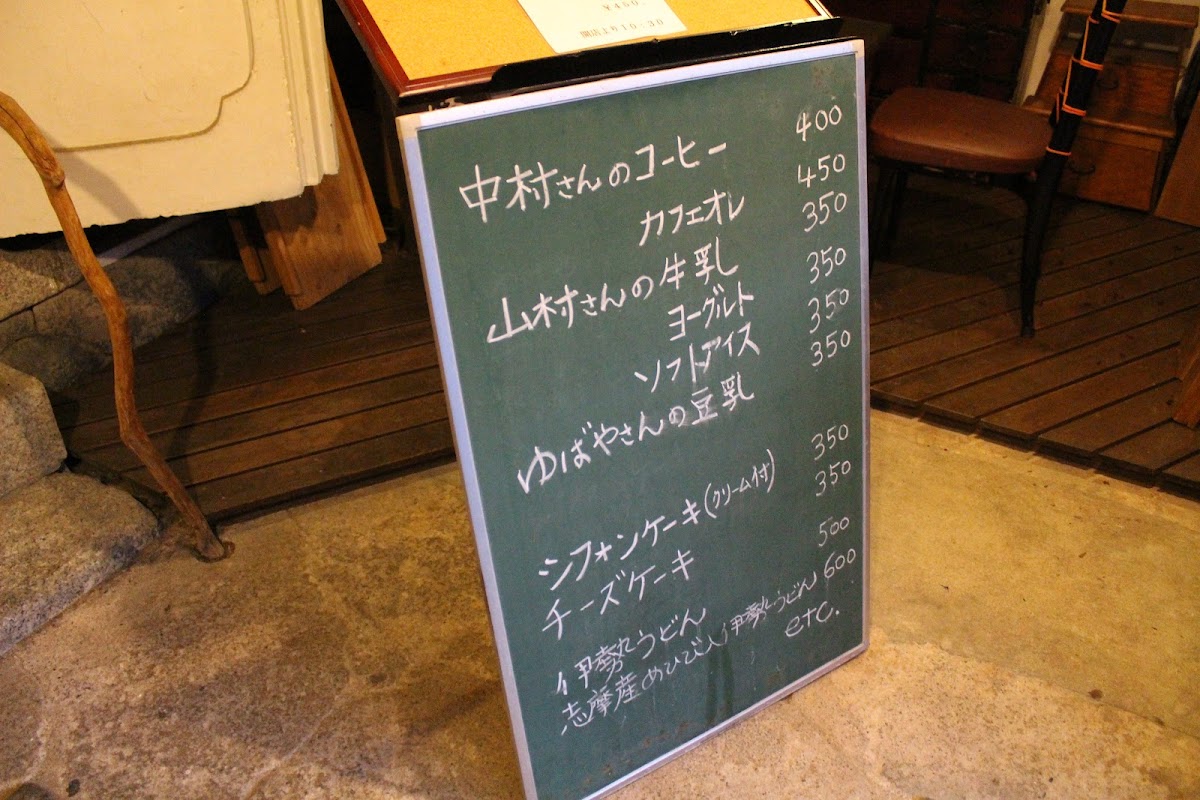 ¥450.
開店より10:30
中村さんのコーヒー 400
カフェオレ 450
山村さんの牛乳 350
ヨーグルト 350
ソフトアイス 350
ゆばやさんの豆乳 350
シフォンケーキ(クリーム付) 350
チーズケーキ 350
伊勢うどん 500
志摩産めひび入伊勢うどん 600
etc.